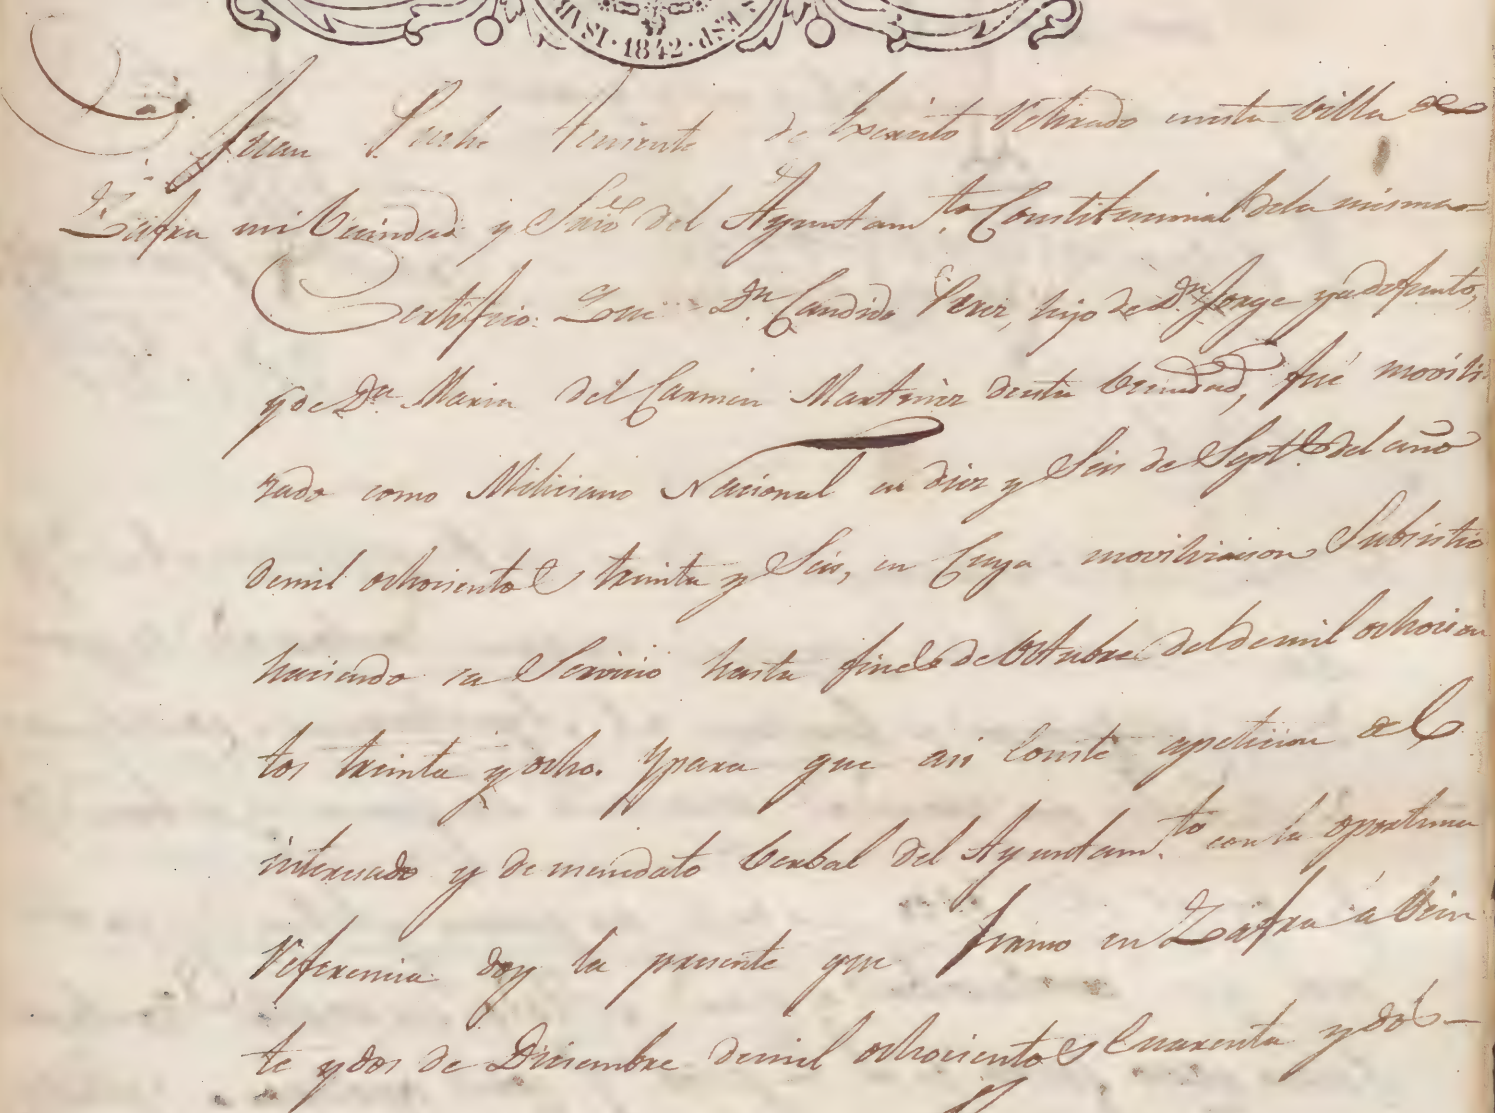 1842
Juan Teniente de Exercito Retirado enesta Villa de
Zafra mi Vecindad y Srio del Ayuntamto Constitucional dela misma=
Certifico: Que Dn Candido Perez, hijo de Dn Jorge ya defunto,
y de Da Maria del Carmen Martinez desta Vecindad, fué movili-
zado como Miliciano Nacional en diez y Seis de Septe del año
demil ochocientos treinta y Seis, en Cuya movilizacion Subsistio
haciendo su Servicio hasta fines de Octubre del demil ochocien
tos treinta y ocho. Ypara que asi Conste apeticion del
interesado y de mandato Verbal del Ayuntamto con la oportuna
Referencia doy la presente que firmo en Zafra á Vein
te y dos de Diciembre demil ochocientos Cuarenta y dos—